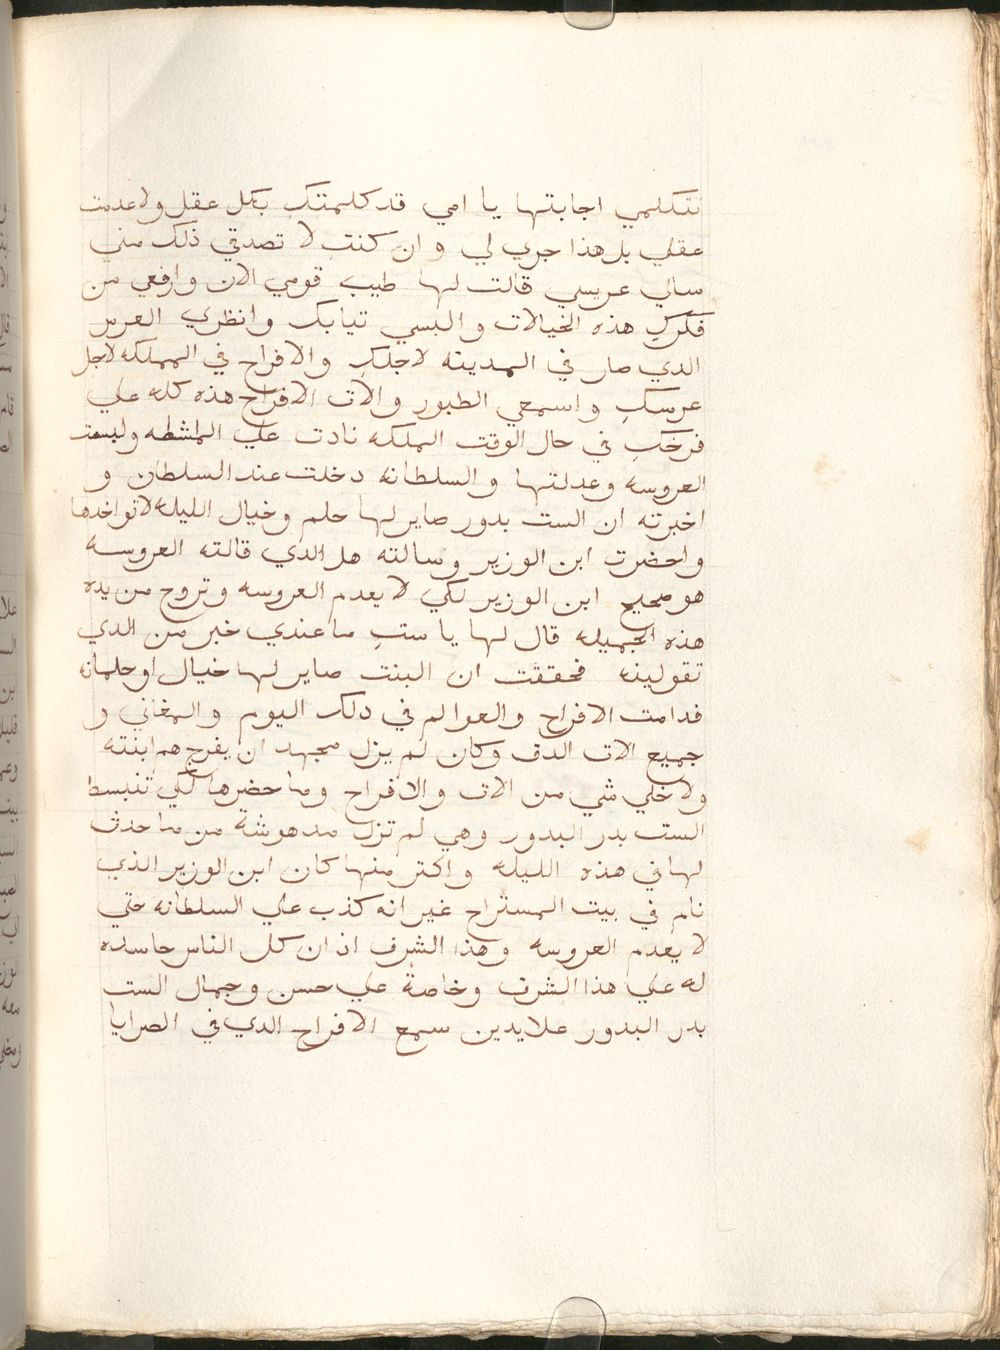 تتكلمي اجابتها يا امي قد كلمتك بكل عقل ولا عدمت
عقلي بل هذا جري لي وان كنت لا تصدقي ذلك مني
سالي عريسي قالت لها طيب قومي الان وارفعي من
فكرك هذه الخيالات والبسي تيابك وانظري العرس
الدي صار في المدينه لاجلك والافراح في المملكه لاجل
عرسك واسمعي الطبور والات الافراح هذه كله علي
فرحك في حال الوقت الملكه نادت علي الماشطه ولبست
العروسه وعدلتها والسلطانه دخلت عند السلطان و
اخبرته ان الست بدور صاير لها حلم وخيال الليله لا تواخدها
واحضرت ابن الوزير وسالته هل الدي قالته العروسه
هو صحيح ابن الوزير لكي لا يعدم العروسه وتروح من يده
هذه الجميله قال لها يا ست ما عندي خبر من الدي
تقولينه فحققت ان البنت صاير لها خيال او حلمانه
فدامت الافراح والعوالم في دلك اليوم والمغاني و
جميع الات الدف وكان لم يزل مجهد ان يفرج هم ابنته
ولا خلي شي من الات والافراح وما حضرها لكي تنبسط
الست بدر البدور وهي لم تزل مدهوشة من ما حدث
لها في هذه الليله واكتر منها كان ابن الوزير الذي
نام في بيت المستراح غير انه كذب علي السلطانه حتي
لا يعدم العروسه وهذا الشرف اذ ان كل الناس حاسده
له علي هذا الشرف وخاصة علي حسن وجمال الست
بدر البدور علايدين سمع الافراح الدي في الصرايا